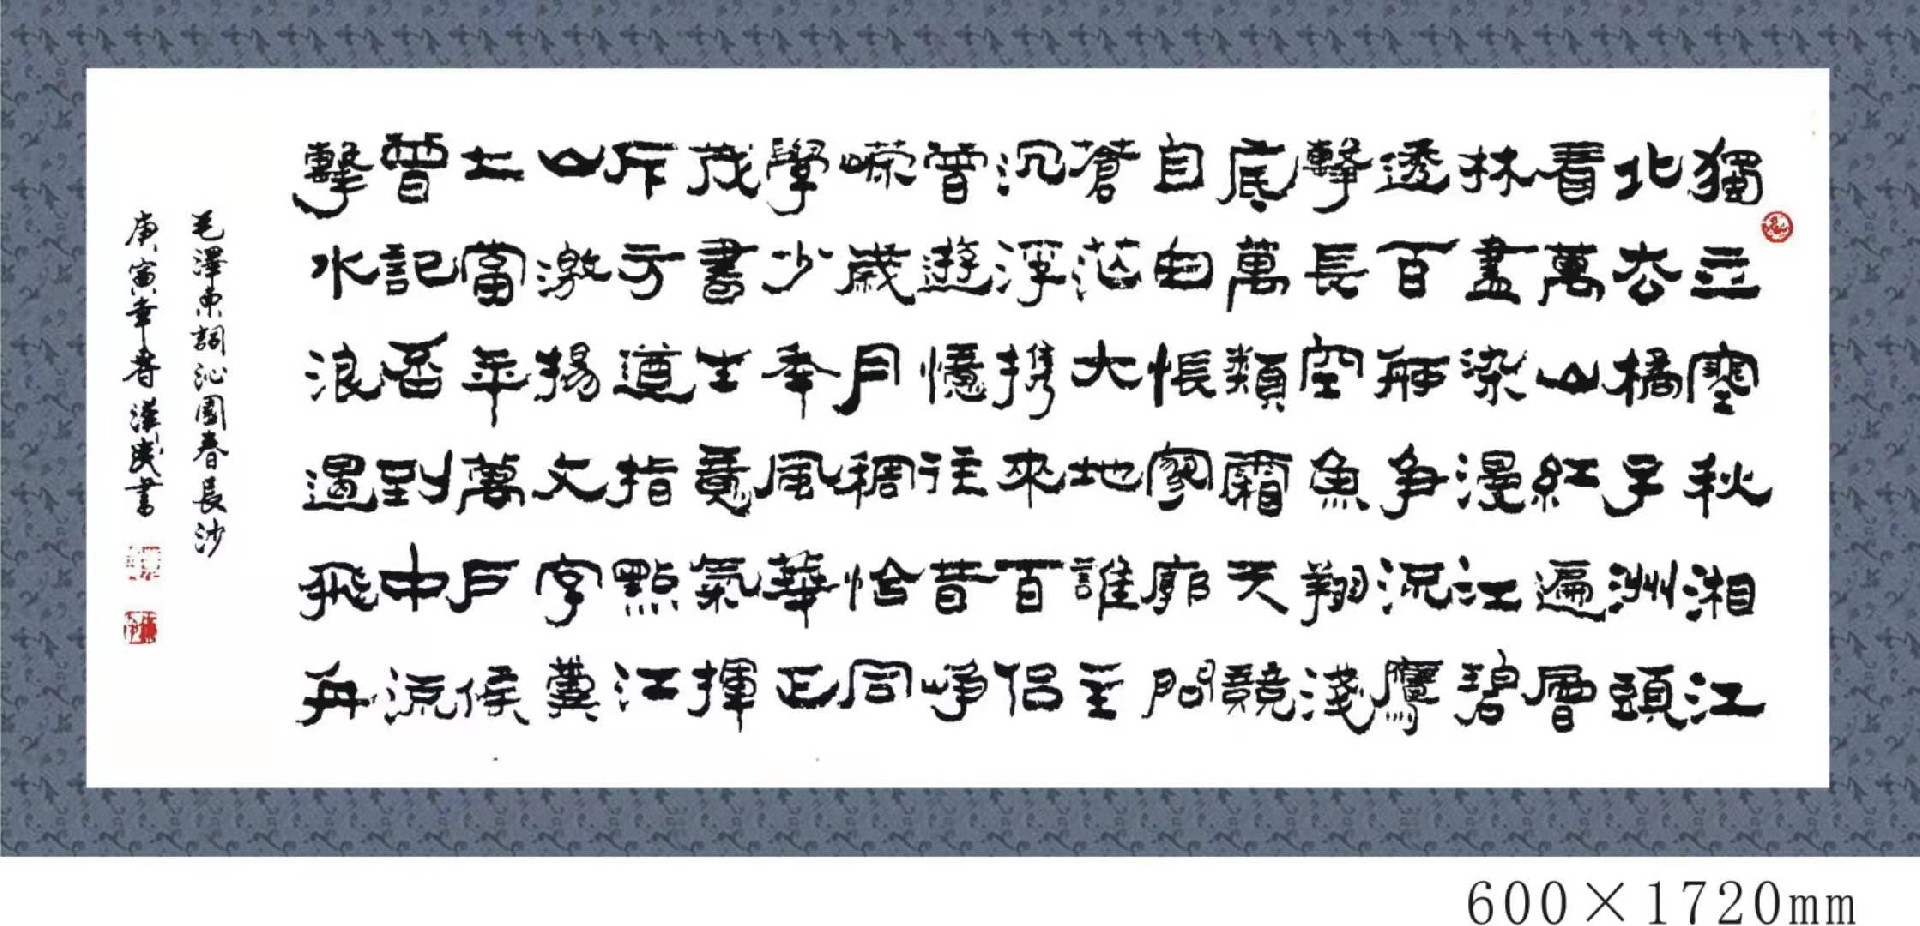 獨立寒秋湘江
北去橘子洲頭
看萬山紅遍層
林盡染漫江碧
透百舸争流鷹
擊長空魚翔淺
底萬類霜天競
自由悵寥廓問
蒼茫大地誰主
沉浮携來百侣
曾遊憶往昔崢
嶸歲月稠恰同
學少年風華正
茂書生意氣揮
斥方遒指點江
山激揚文字糞
土當年萬戶侯
曾記否到中流
擊水浪遏飛舟
毛澤東詞沁園春長沙
庚寅年春漢書
600×1720mm